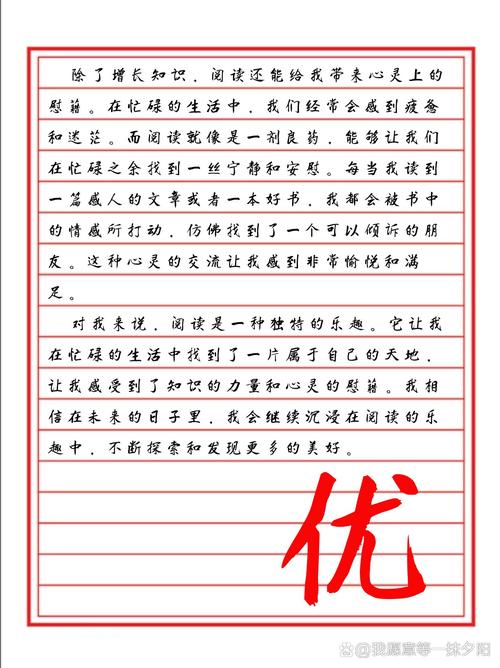 除了增长知识，阅读还能给我带来心灵上的
慰藉。在忙碌的生活中，我们经常会感到疲惫
和迷茫。而阅读就像是一剂良药，能够让我们
在忙碌之余找到一丝宁静和安慰。每当我读到
一篇感人的文章或者一本好书，我都会被书中
的情感所打动，仿佛找到了一个可以倾诉的朋
友。这种心灵的交流让我感到非常愉悦和满
足。
对我来说，阅读是一种独特的乐趣。它让我
在忙碌的生活中找到了一片属于自己的天地，
让我感受到了知识的力量和心灵的慰藉。我相
信在未来的日子里，我会继续沉浸在阅读的乐
趣中，不断探索和发现更多的美好。
优
@我愿意等一抹夕阳